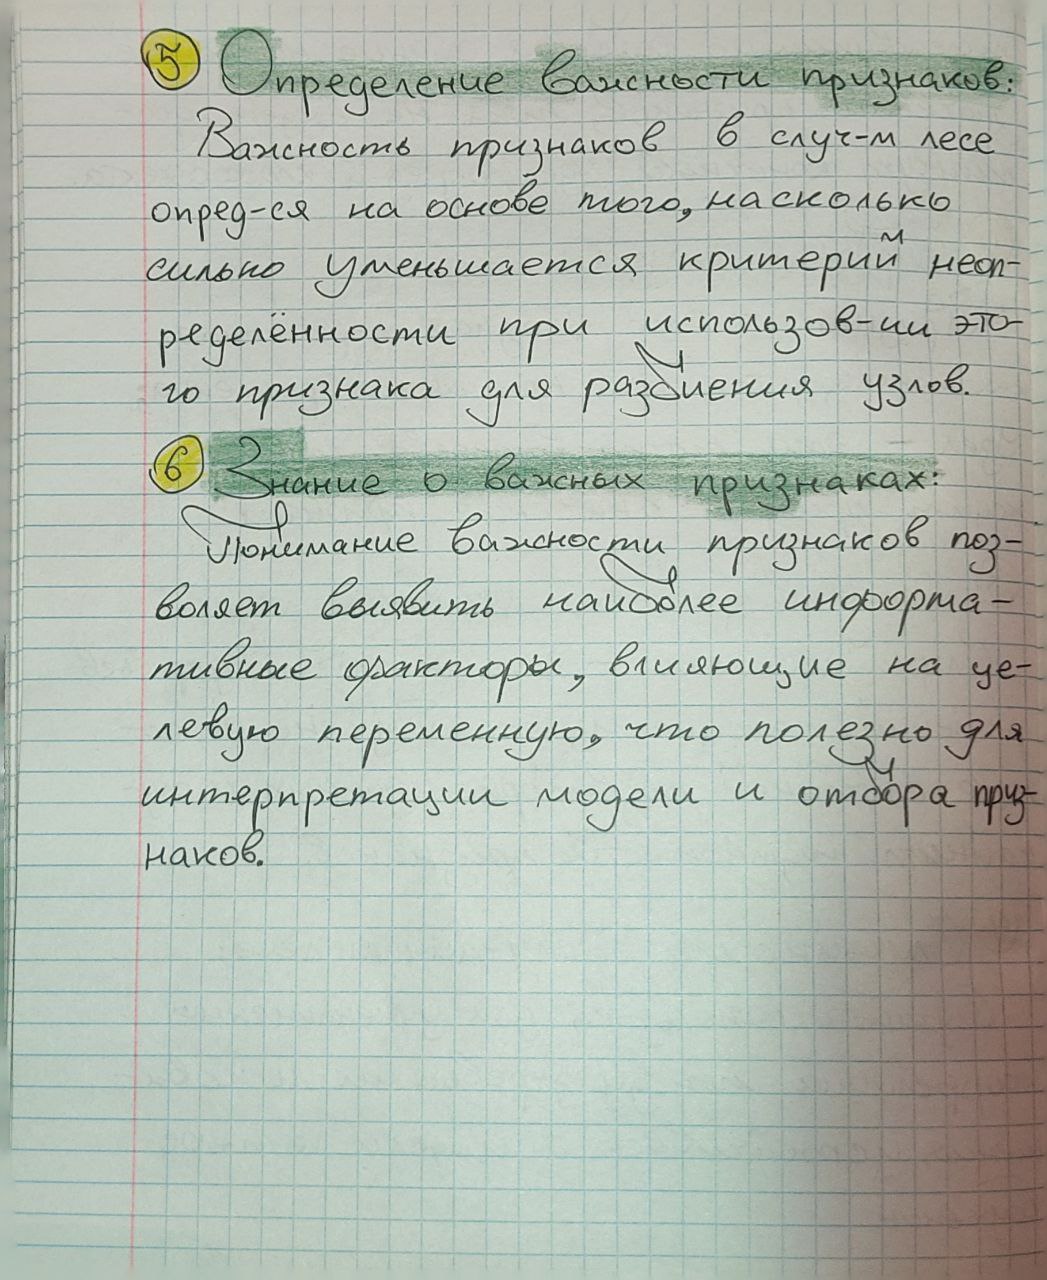 5 Определение важности признаков:
Важность признаков в случ-м лесе
опред-ся на основе того, насколько
сильно уменьшается критерий неоп-
ределённости при использов-ии это-
го признака для разбиения узлов.
6 Знание о важных признаках:
Понимание важности признаков поз-
воляет выявить наиболее информа-
тивные факторы, влияющие на це-
левую переменную, что полезно для
интерпретации модели и отбора приз-
наков.